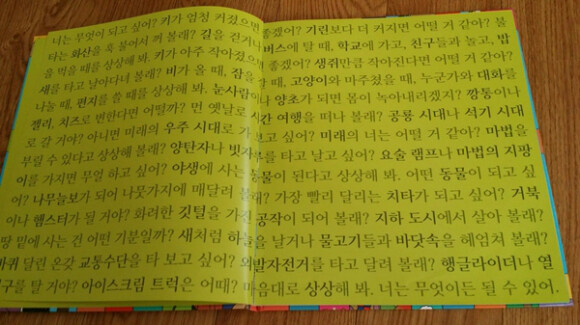 너는 무엇이 되고 싶어? 키가 엄청 커졌으면 좋겠어? 기린보다 더 커지면 어떨 거 같아? 불
타는 화산을 훅 불어서 꺼 볼래? 길을 걷거나 버스에 탈 때, 학교에 가고, 친구들과 놀고, 밥
을 먹을 때를 상상해 봐. 키가 아주 작아졌으면 좋겠어? 생쥐만큼 작아진다면 어떨 거 같아?
새를 타고 날아다녀 볼래? 비가 올 때, 잠을 잘 때, 고양이와 마주쳤을 때, 누군가와 대화를
나눌 때, 편지를 쓸 때를 상상해 봐. 눈사람이나 양초가 되면 몸이 녹아내리겠지? 깡통이나
젤리, 치즈로 변한다면 어떨까? 먼 옛날로 시간 여행을 떠나 볼래? 공룡 시대나 석기 시대
로 갈 거야? 아니면 미래의 우주 시대로 가 보고 싶어? 미래의 너는 어떨 거 같아? 마법을
부릴 수 있다고 상상해 볼래? 양탄자나 빗자루를 타고 날고 싶어? 요술 램프나 마법의 지팡
이를 가지면 무얼 하고 싶어? 야생에 사는 동물이 된다고 상상해 봐. 어떤 동물이 되고 싶
어? 나무늘보가 되어 나뭇가지에 매달려 볼래? 가장 빨리 달리는 치타가 되고 싶어? 거북
이나 햄스터가 될 거야? 화려한 깃털을 가진 공작이 되어 볼래? 지하 도시에서 살아 볼래?
땅 밑에 사는 건 어떤 기분일까? 새처럼 하늘을 날거나 물고기들과 바닷속을 헤엄쳐 볼래?
바퀴 달린 온갖 교통수단을 타 보고 싶어? 외발자전거를 타고 달려 볼래? 행글라이더나 열
기구를 탈 거야? 아이스크림 트럭은 어때? 마음대로 상상해 봐. 너는 무엇이든 될 수 있어.